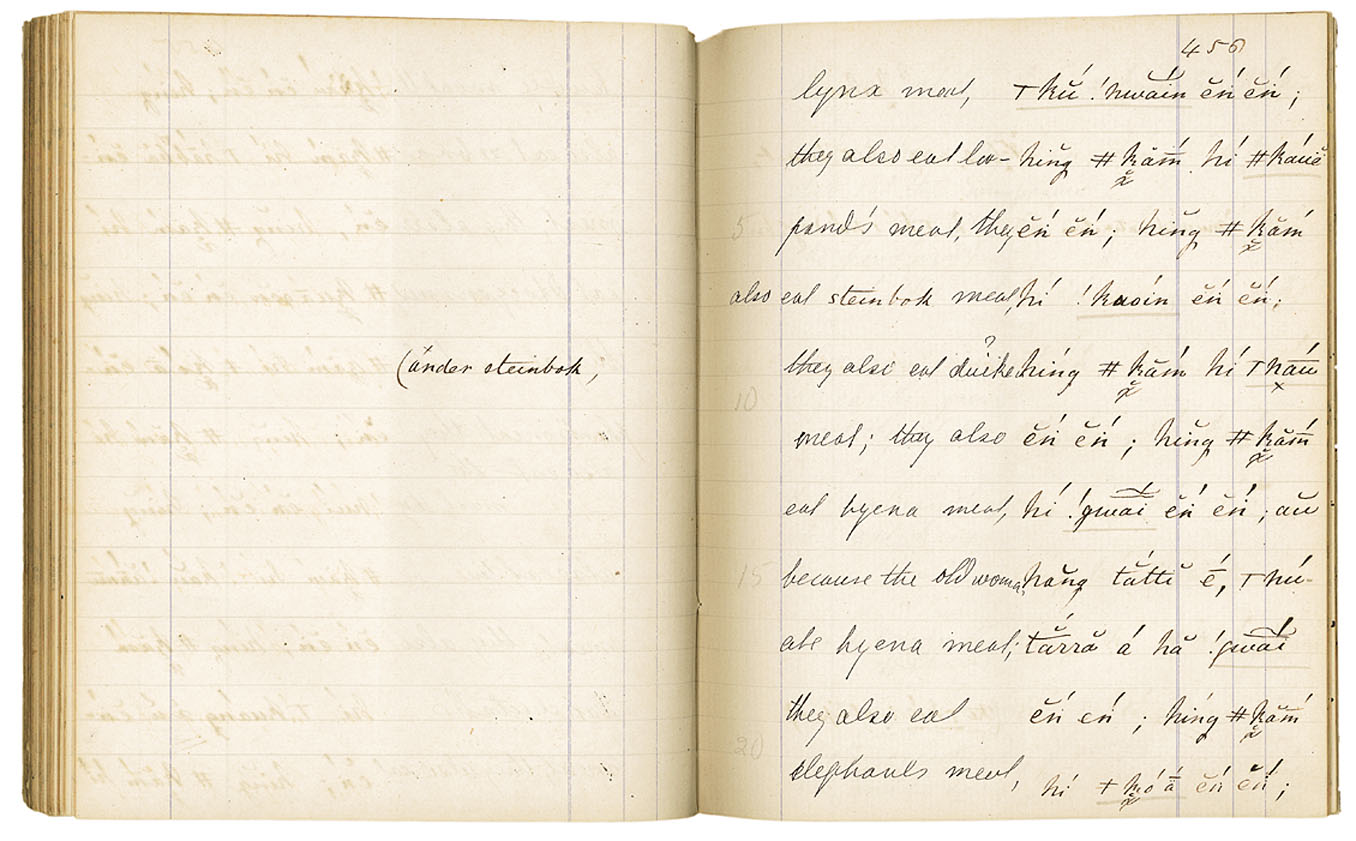 (änder steinbok,
456
lynx meat, ⊤kŭ́ !nwāin ĕń ĕń ;
they also eat leo- hiňg ǂkắm hí ǂkáuĕ
5 pard's meat, they ĕń ĕń ; hiňg ǂkắm
also eat steinbok meat, hí !kaoin ĕń ĕń ;
they also eat duiker híng ǂkắm hí ⊤náu
10
meat ; they also ĕń ĕń ; hiňg ǂkắm
eat hyena meat, hí !gwāi ĕń ĕń ; aŭ
15 because the old woman hăng tắttĭ é̄, ⊤nú-
ate hyena meat; tắrră á hă !gwāi
they also eat ĕń eń ; híng ǂkắm
20 elephants meat, hí ǂkóā́ ĕń ĕń ;